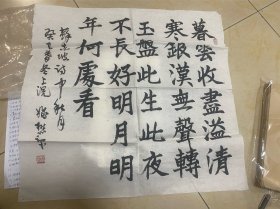 暮雲收盡溢清
寒銀漢無聲轉
玉盤此生此夜
不長好明月明
年何處看
蘇東坡詩中秋月